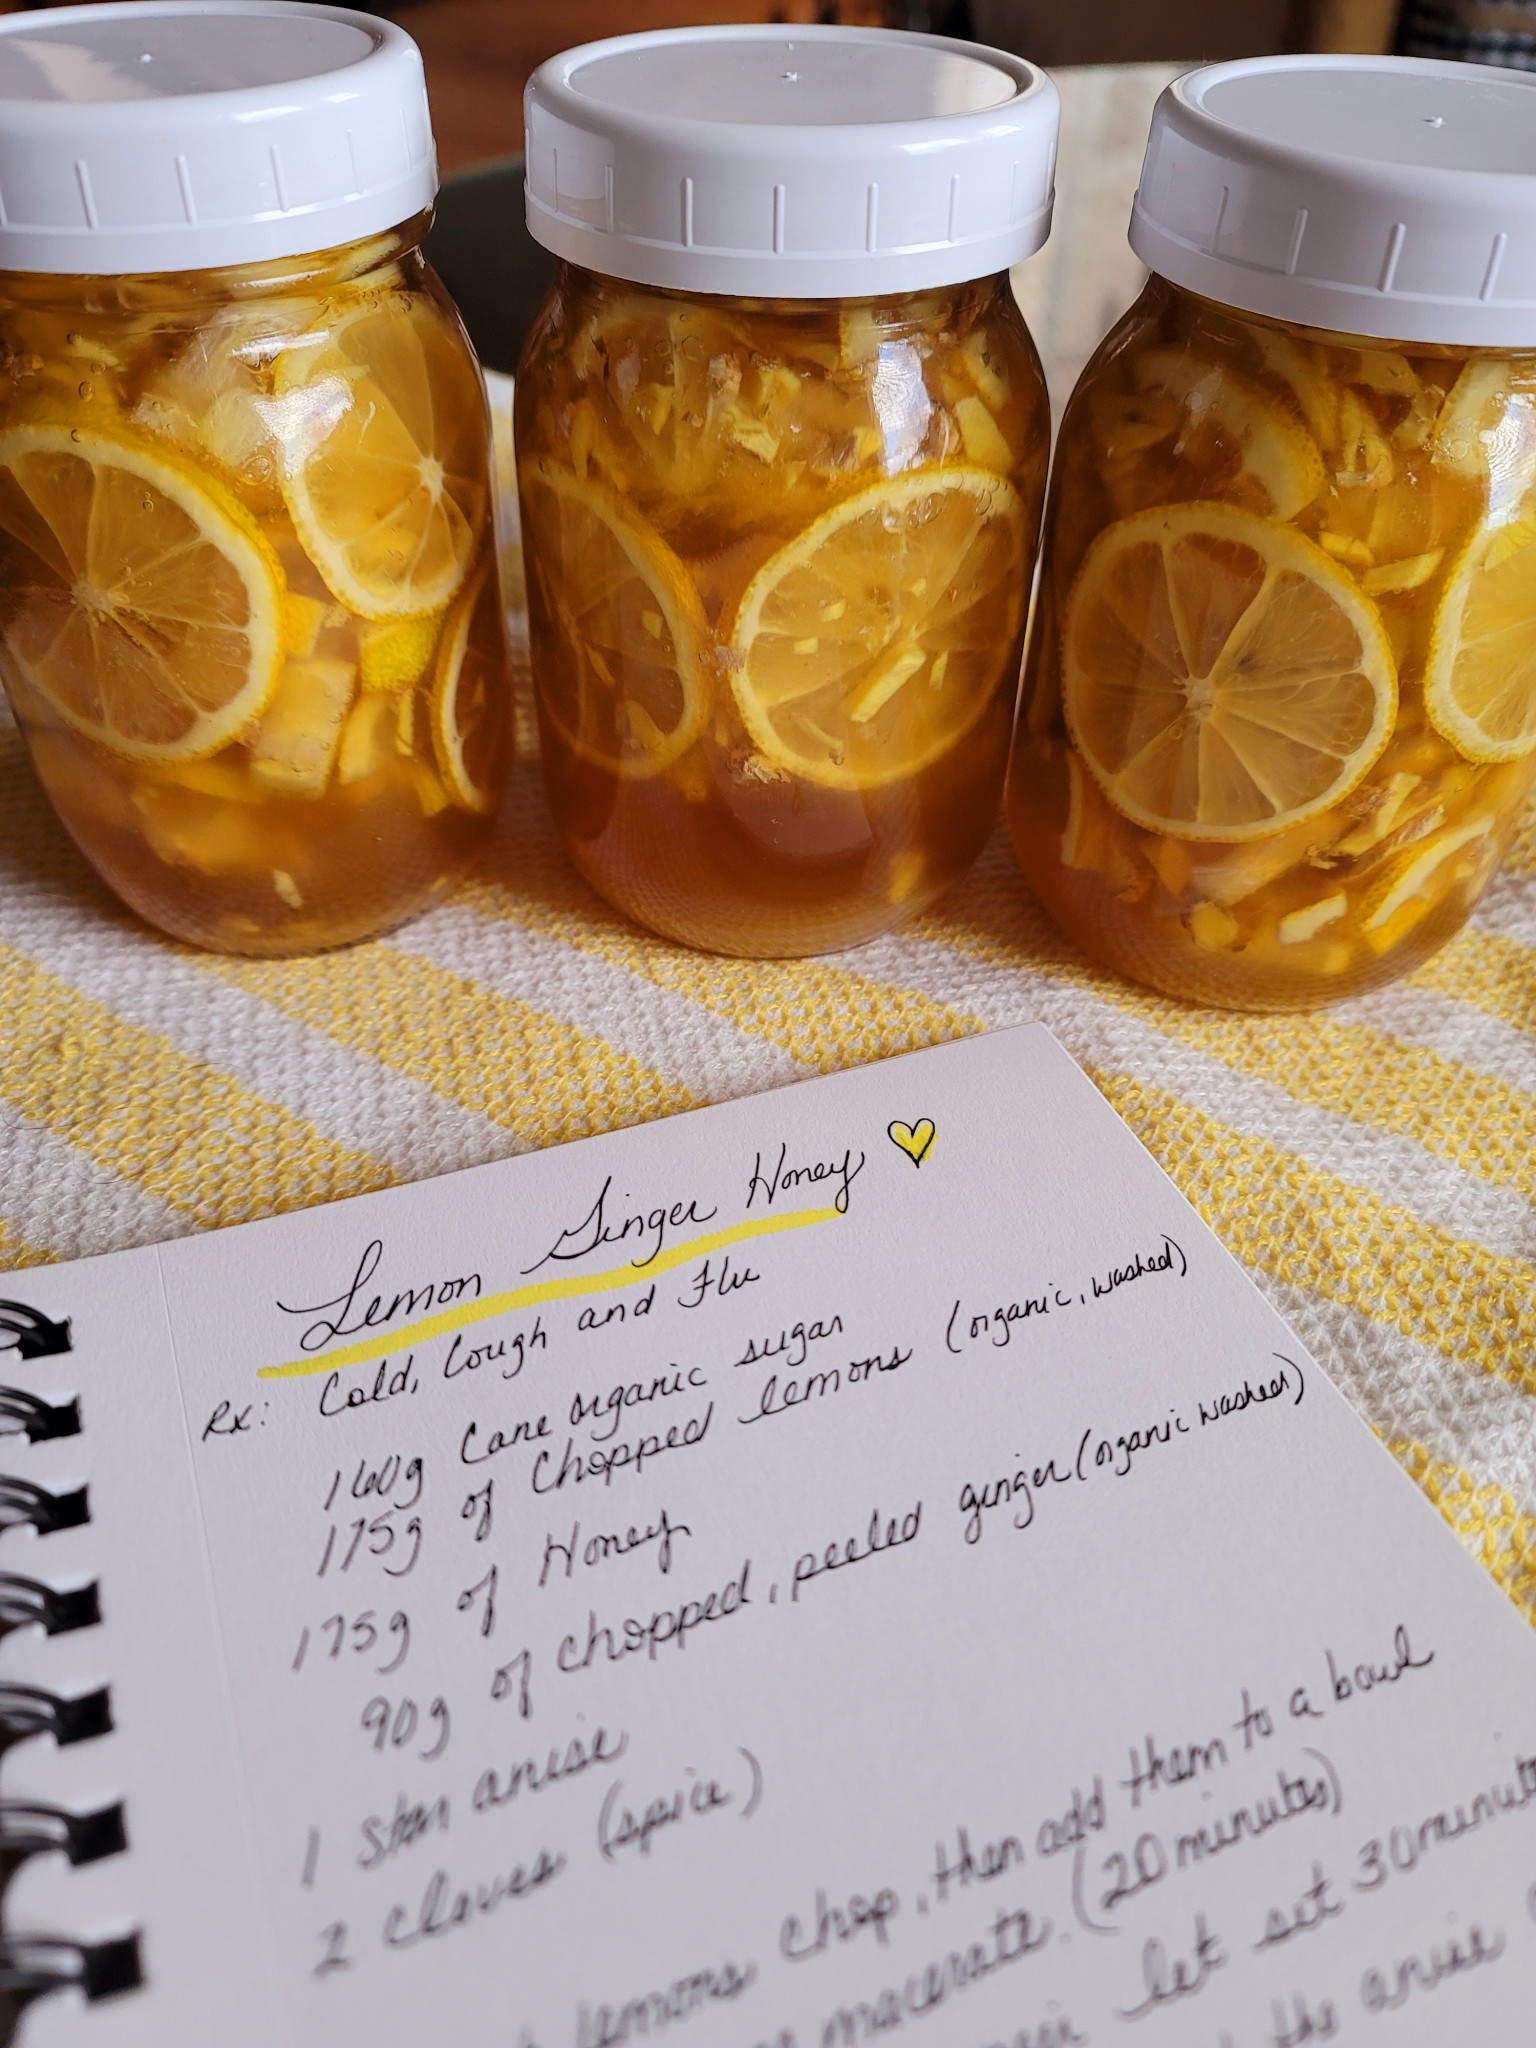 Lemon Ginger Honey
Rx: Cold, Cough and Flu
160g Cane organic sugar
175g of Chopped lemons (organic, washed)
175g of Honey
90g of chopped, peeled ginger (organic washed)
1 Star anise
2 cloves (spice)
lemons chop, then add them to a bowl
macerate. (20 minutes)
let set 30 minutes
the anise